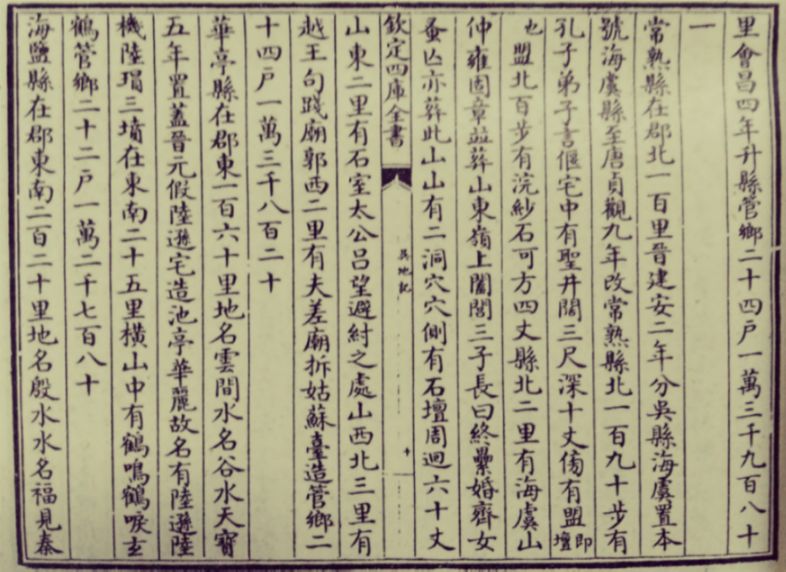 里會昌四年升縣管鄉二十四户一萬三千九百八十
一
常熟縣在郡北一百里晉建安二年分吳縣海虞置本
號海虞縣至唐貞觀九年改常熟縣北一百九十步有
孔子弟子言偃宅中有聖井闊三尺深十丈傍有盟即壇
也盟北百步有浣紗石可方四丈縣北二里有海虞山
仲雍周章並葬山東嶺上闔閭三子長曰終纍婚齊女
蚤亡亦葬此山山有二洞穴穴側有石壇周迴六十丈
欽定四庫全書
吳地記
十
山東二里有石室太公吕望避紂之處山西北三里有
越王句踐廟郭西二里有夫差廟拆姑蘇臺造管鄉二
十四户一萬三千八百二十
華亭縣在郡東一百六十里地名雲間水名谷水天寶
五年置蓋晉元假陸遜宅造池亭華麗故名有陸遜陸
機陸瑁三墳在東南二十五里橫山中有鶴鳴鶴唳玄
鶴管鄉二十二户一萬二千七百八十
海鹽縣在郡東南二百二十里地名殷水水名福見秦